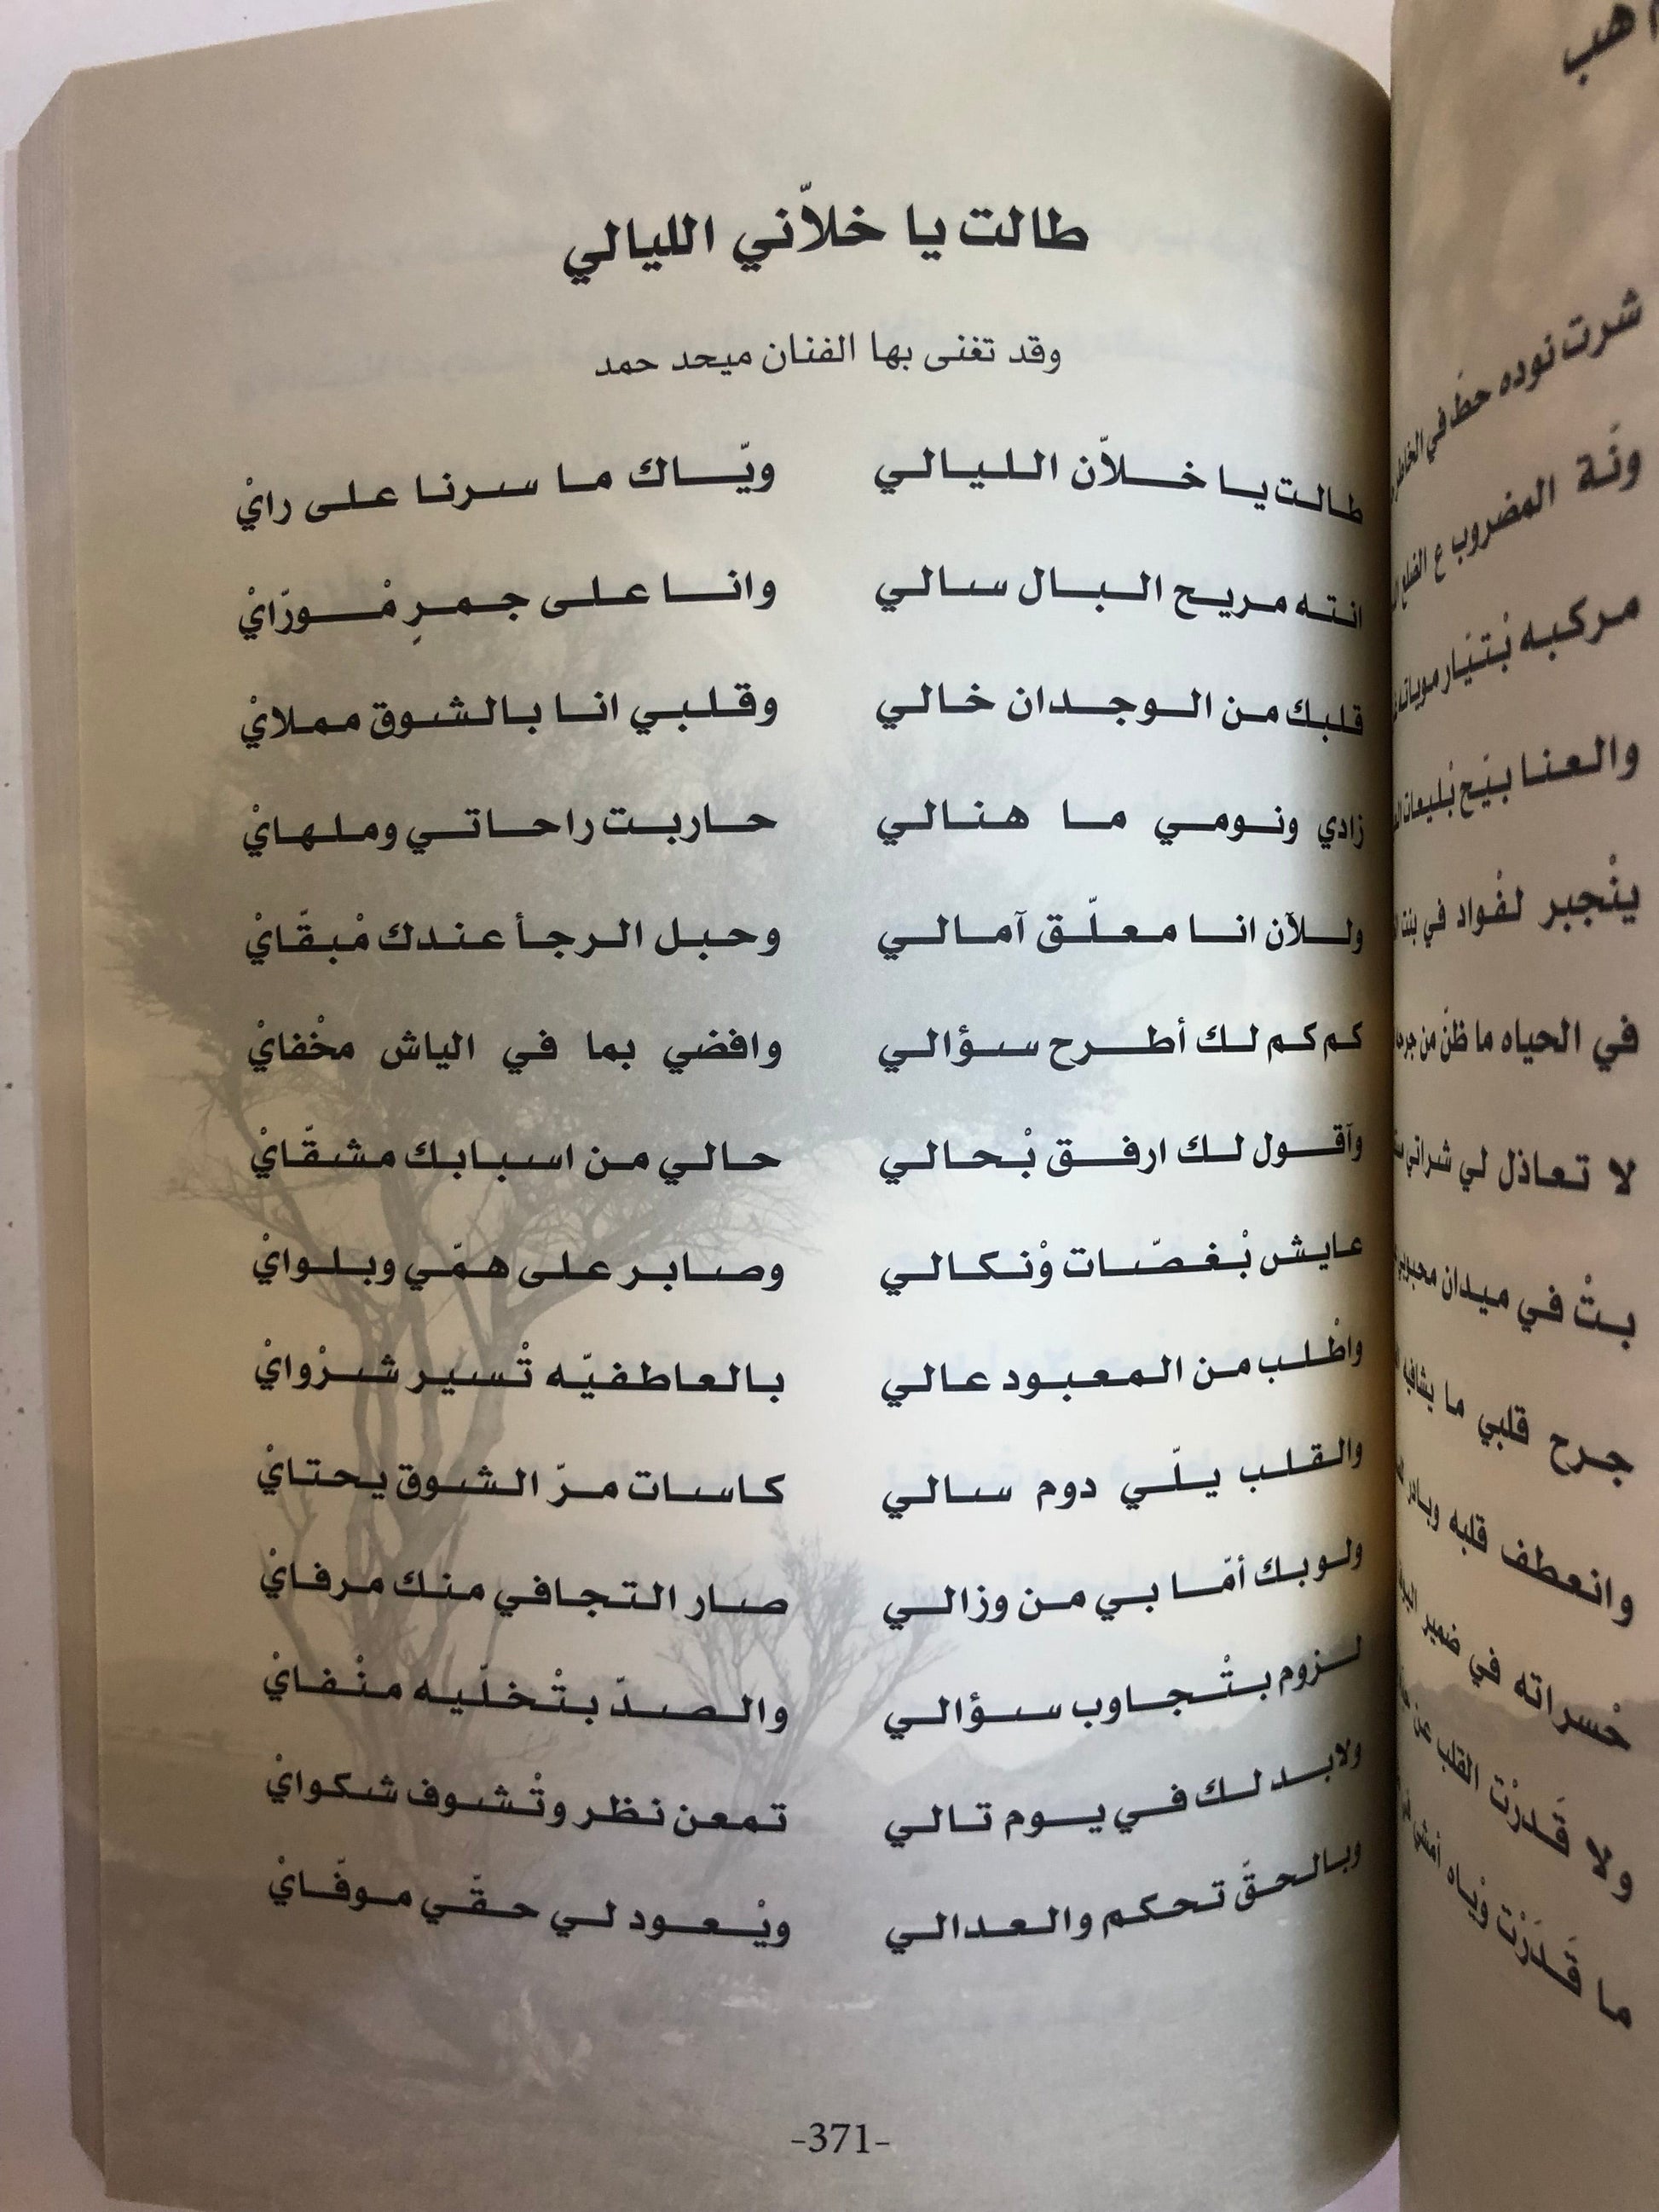 طالت يا خلاّني الليالي
وقد تغنى بها الفنان ميحد حمد
طالت يا خلاّن الليالي ويّاك ما سرنا على رايْ
انته مريح البال سالي وانا على جمرٍ مْورّايْ
قلبك من الوجدان خالي وقلبي انا بالشوق مملايْ
زادي ونومي ما هنالي حاربت راحاتي وملهايْ
وللآن انا معلّق آمالي وحبل الرجأ عندك مْبقّايْ
كم كم لك أطرح سؤالي وافضي بما في الياش مخْفايْ
وآقول لك ارفق بْحالي حالي من اسبابك مشقّايْ
عايش بْغصّات وْنكالي وصابر على همّي وبلوايْ
واطْلب من المعبود عالي بالعاطفيّه تْسير شرْوايْ
والقلب يلّي دوم سالي كاسات مرّ الشوق يحتايْ
ولوبك أمّا بي من وزالي صار التجافي منك مرفايْ
لزوم بتْجاوب سؤالي والصدّ بتْخلّيه منْفايْ
ولابد لك في يوم تالي تمعن نظر وتْشوف شكوايْ
وبالحقّ تحكم والعدالي ويْعود لي حقّي موفّايْ
-371-
اهب
شرت نوده حطّ في
ونّة المضروب ع
مركبه بْتيّار
والعنا بيّح
ينْجبر لفْواد في بنت
في الحياه ما ظنّ من
لا تعاذل لي شراني
بتْ في ميدان
جرح قلبي ما يشافيه
وانعطف قلبه
حْسراته في ضمير
ولا قَدرْت القلب عن
ما قَدَرْت ويّاه أمشي